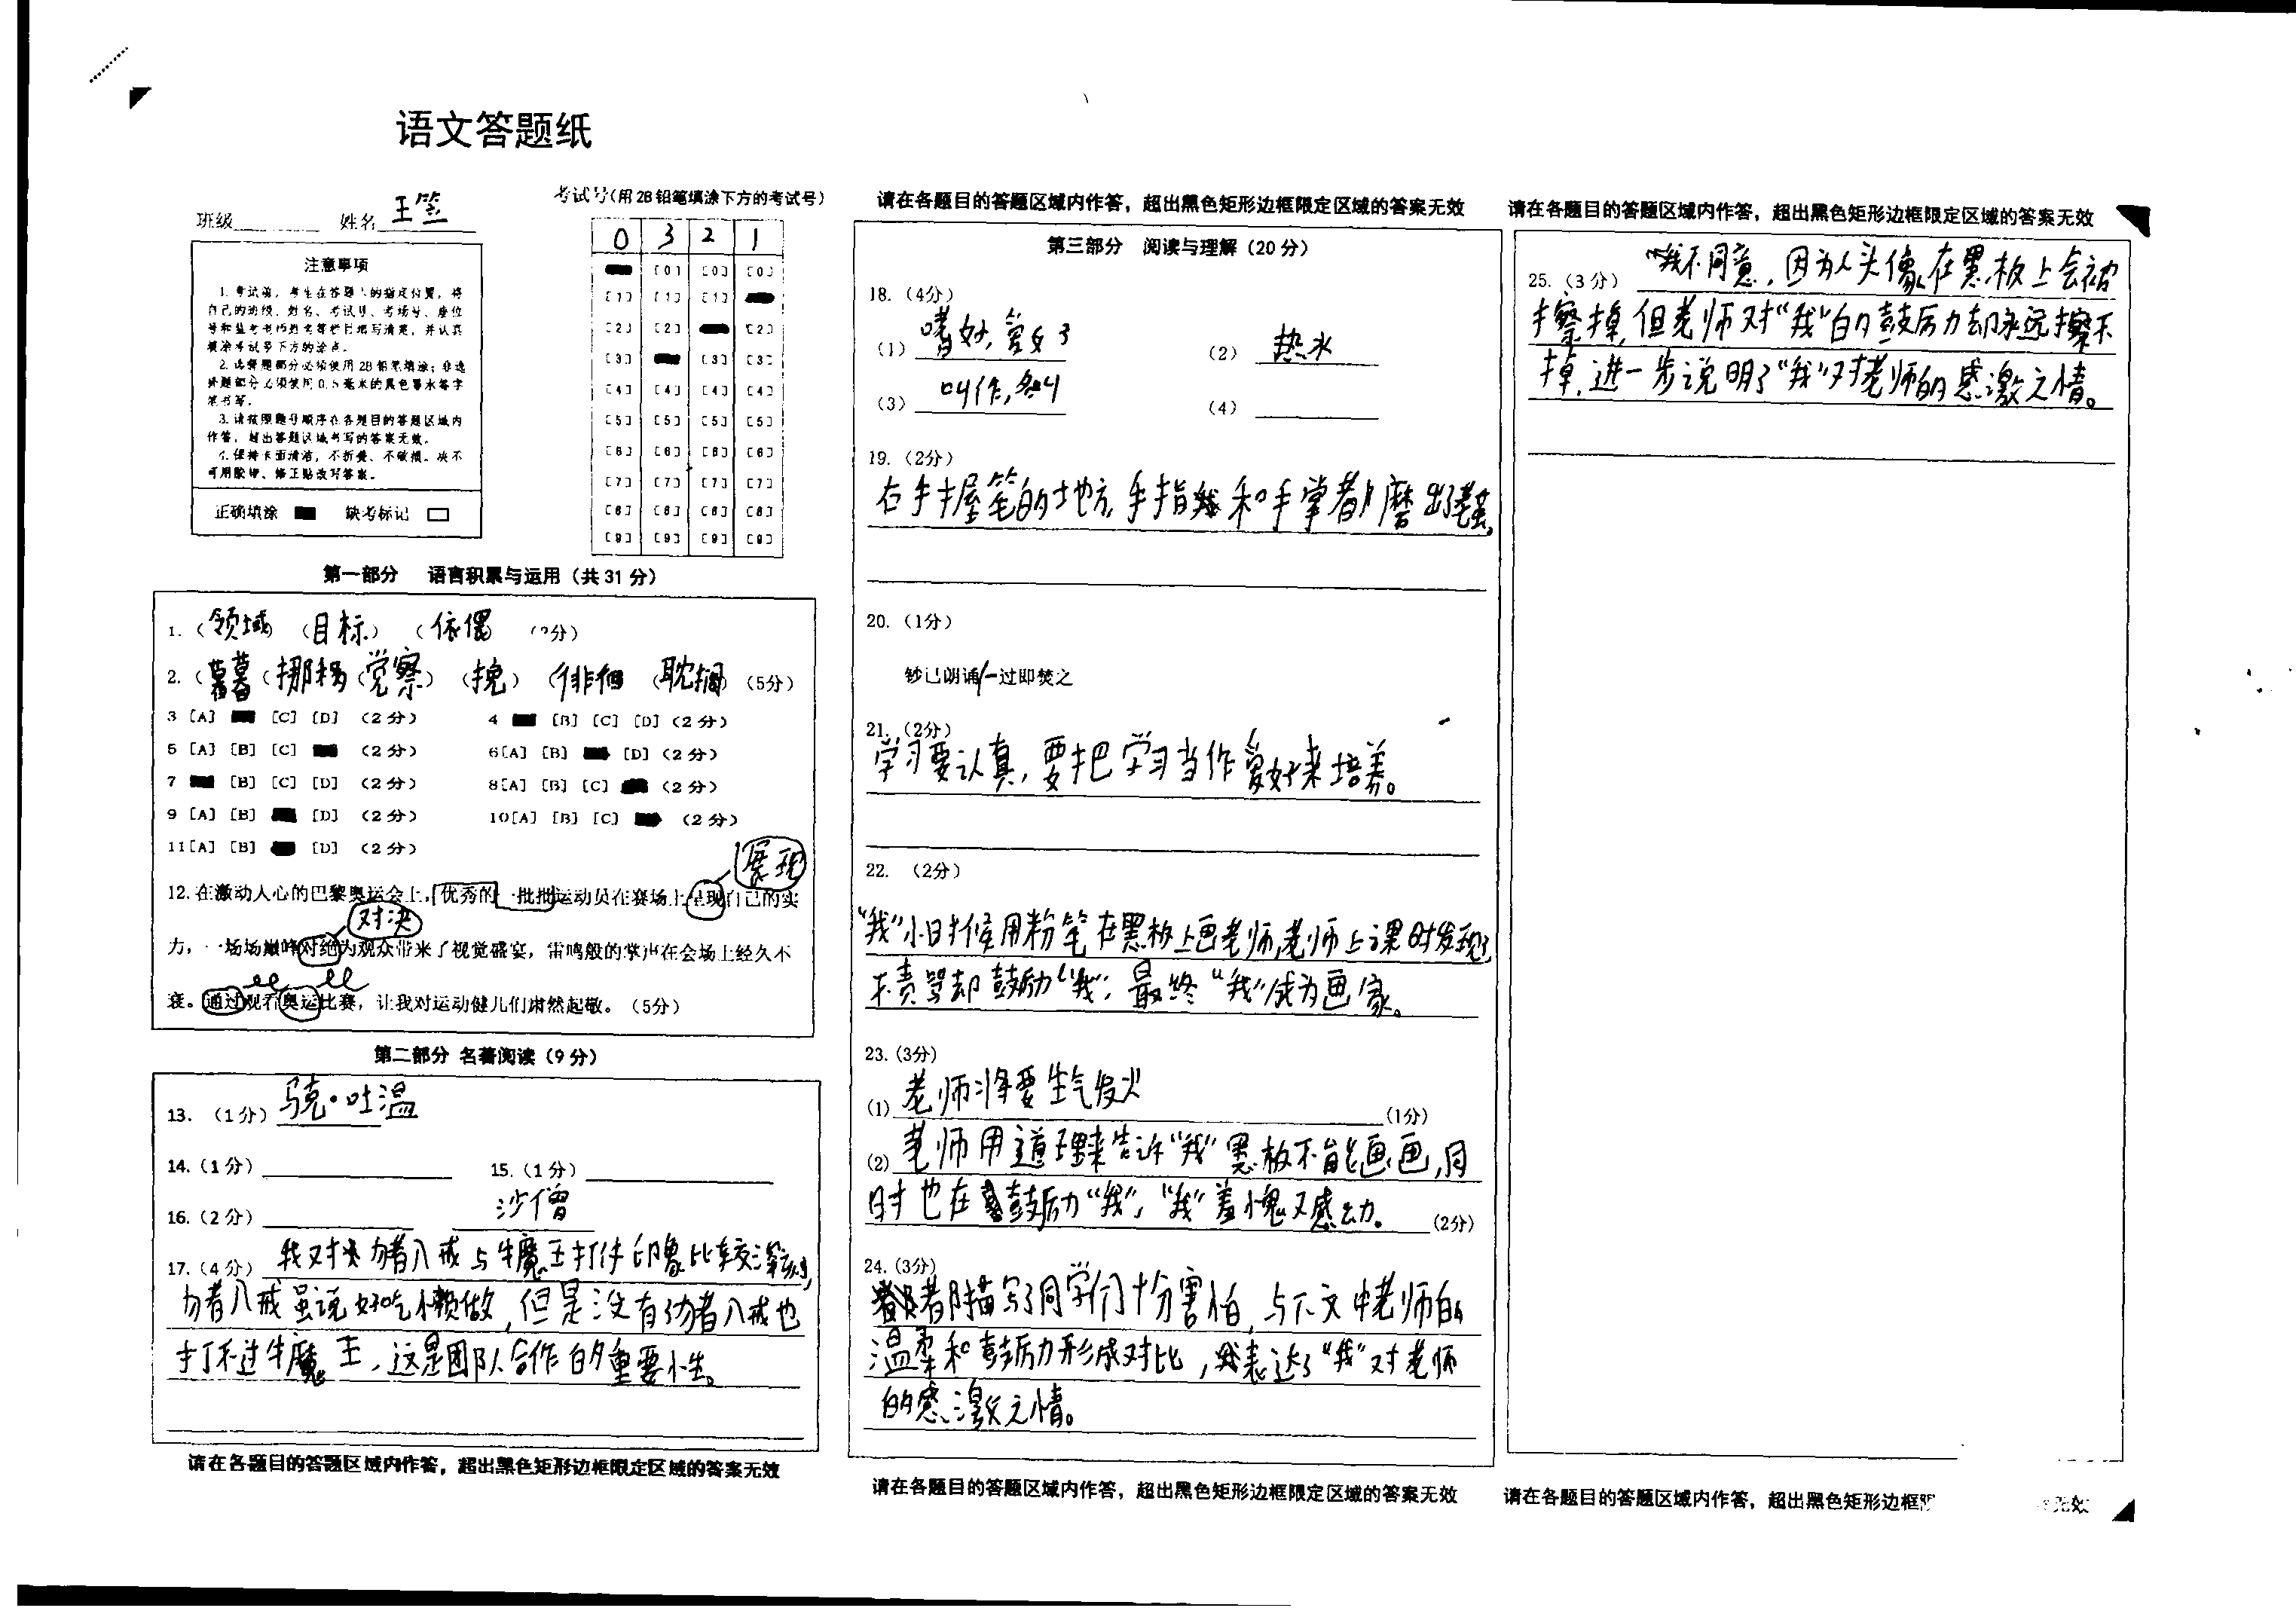 语文答题纸
班级 姓名 王笠
考试号(用2B铅笔填涂下方的考试号)
0 3 2 1
注意事项
1.考试前，考生在答题卡的指定位置，将
自己的班级、姓名、考试号、考场号、座位
号和监考老师姓名等栏目填写清楚，并认真
填涂考试号下方的涂点。
2.选择题部分必须使用2B铅笔填涂；非选
择题部分必须使用0.5毫米的黑色墨水签字
笔书写。
3.请按照题号顺序在各题目的答题区域内
作答，超出答题区域书写的答案无效。
4.保持卡面清洁，不折叠、不破损。决不
可用胶带、修正贴改写答案。
正确填涂 缺考标记
[0] [0] [0]
[1] [1] [1]
[2] [2] [2]
[3] [3] [3]
[4] [4] [4] [4]
[5] [5] [5] [5]
[6] [6] [6] [6]
[7] [7] [7] [7]
[8] [8] [8] [8]
[9] [9] [9] [9]
第一部分 语言积累与运用（共31分）
1.（领域）（目标）（依偎
2.（ （挪 （觉察）（挽）（徘徊 （耽搁）（5分）
3 [A] [C] [D] （2分） 4 [B] [C] [D]（2分）
5 [A] [B] [C] （2分） 6[A] [B] [D]（2分）
7 [B] [C] [D] （2分） 8[A] [B] [C] （2分）
9 [A] [B] [D] （2分） 10[A] [B] [C] （2分）
11[A] [B] [D] （2分）
展现
12.在激动人心的巴黎奥运会上，优秀的一批批运动员在赛场上呈现自己的实
对决
力，一场场巅峰对绝为观众带来了视觉盛宴，雷鸣般的掌声在会场上经久不
衰。通过观看奥运比赛，让我对运动健儿们肃然起敬。（5分）
第二部分 名著阅读（9分）
13.（1分）马克·吐温
14.（1分） 15.（1分）
16.（2分） 沙僧
17.（4分） 我对 八戒与牛魔王打 印象比较深刻，
八戒虽说好吃懒做，但是没有 八戒也
打不过牛魔王，这是团队合作的重要性。
请在各题目的答题区域内作答，超出黑色矩形边框限定区域的答案无效
请在各题目的答题区域内作答，超出黑色矩形边框限定区域的答案无效
第三部分 阅读与理解（20分）
18.（4分）
（1）嗜好，爱好 （2）热水
（3）叫作， （4）
19.（2分）
右手握笔的地方，手指 和手掌都磨出了老茧。
20.（1分）
钞已朗诵/一过即焚之
21.（2分）
学习要认真，要把学习当作爱好来培养。
22.（2分）
“我”小时候用粉笔在黑板上画老师，老师上课时发现了
不责骂却鼓励“我”，最终“我”成为画家。
23.（3分）
（1）老师将要生气发火 （1分）
（2）老师用道理来告诉“我”黑板不能画画，同
时也在鼓励“我”，“我”羞愧又感动。 （2分）
24.（3分）
都描写了同学们十分害怕，与下文中老师的
温柔和鼓励形成对比，表达了“我”对老师
的感激之情。
请在各题目的答题区域内作答，超出黑色矩形边框限定区域的答案无效
请在各题目的答题区域内作答，超出黑色矩形边框限定区域的答案无效
25.（3分） 我不同意，因为人头像在黑板上会被
擦掉，但老师对“我”的鼓励却永远擦不
掉，进一步说明了“我”对老师的感激之情。
请在各题目的答题区域内作答，超出黑色矩形边框 无效